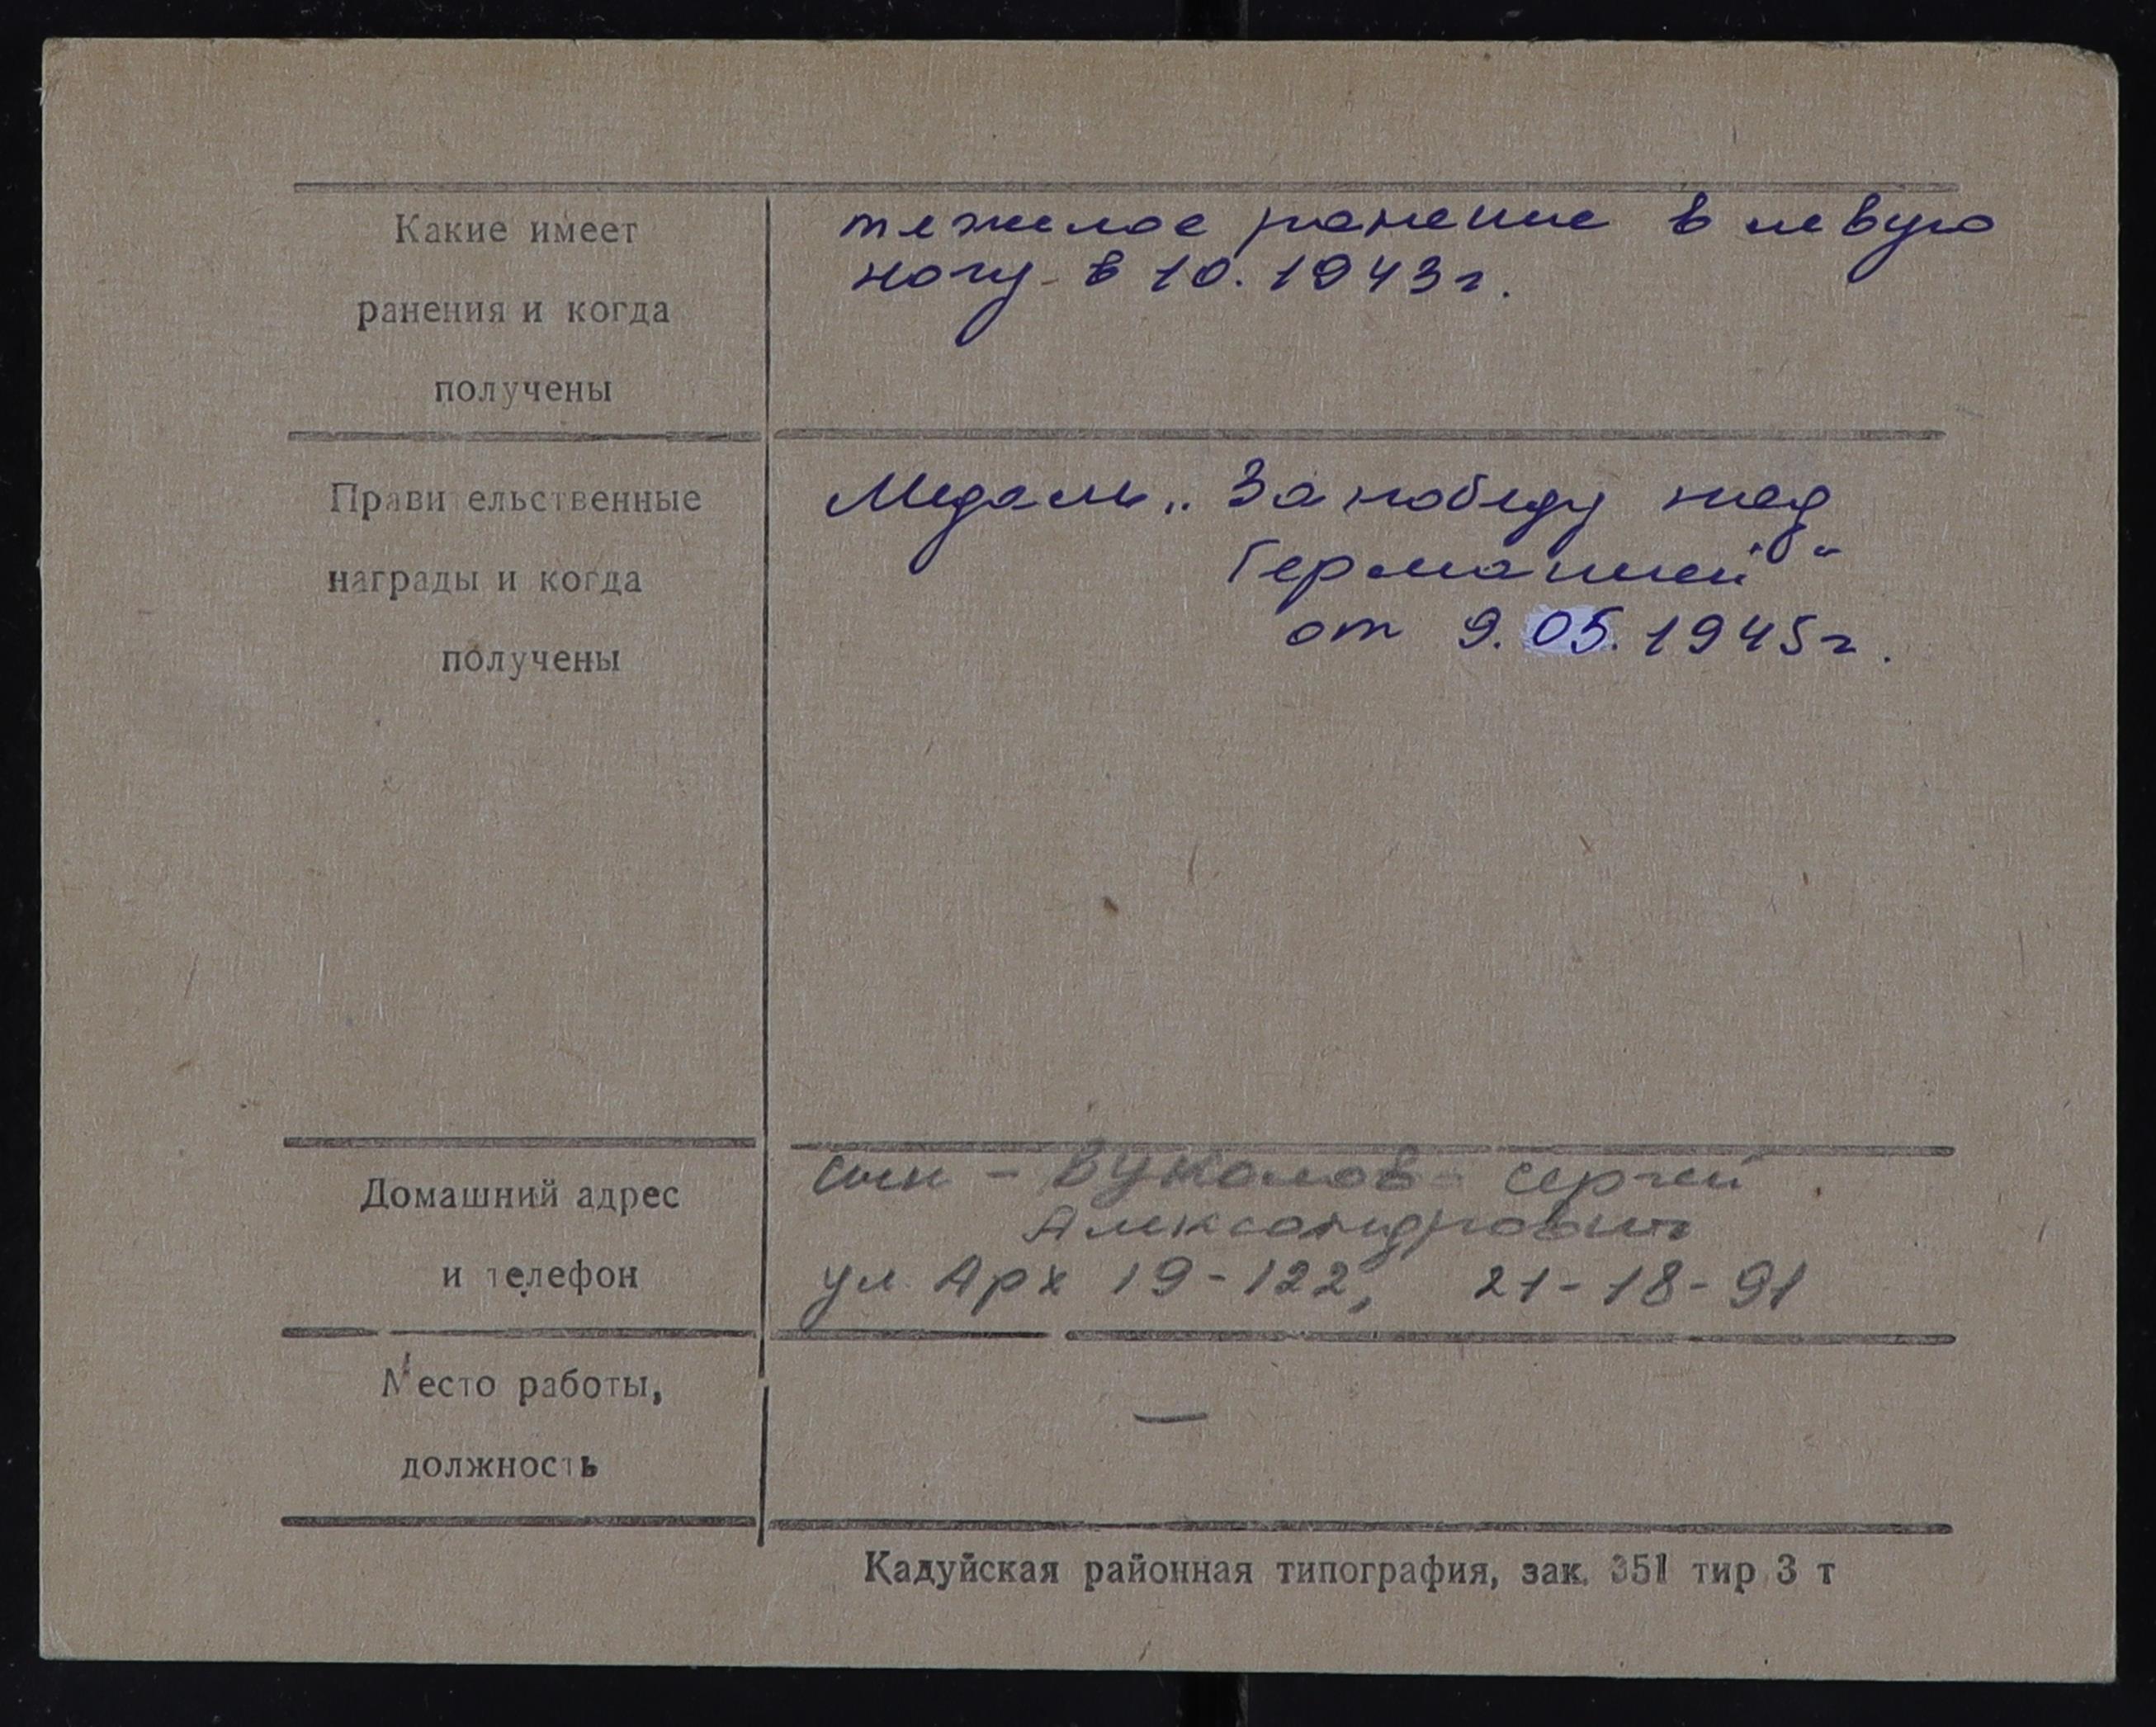 Какие имеет
ранения и когда
получены
тяжелое ранение в левую
ногу в 10.1943г.
Правительственные
награды и когда
получены
Медаль „За победу над
Германией“
от 9.05.1945г.
Домашний адрес
и телефон
сын - Вуколов Сергей
Александрович
ул Арх 19-122, 21-18-91
Место работы,
должность
—
Кадуйская районная типография, зак. 351 тир 3 т